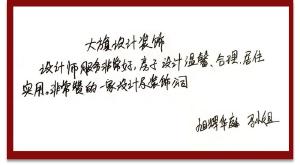 大旗设计装饰
设计师服务非常好,房子设计温馨、合理,居住
实用。非常赞的一家设计及装饰公司
旭辉华庭